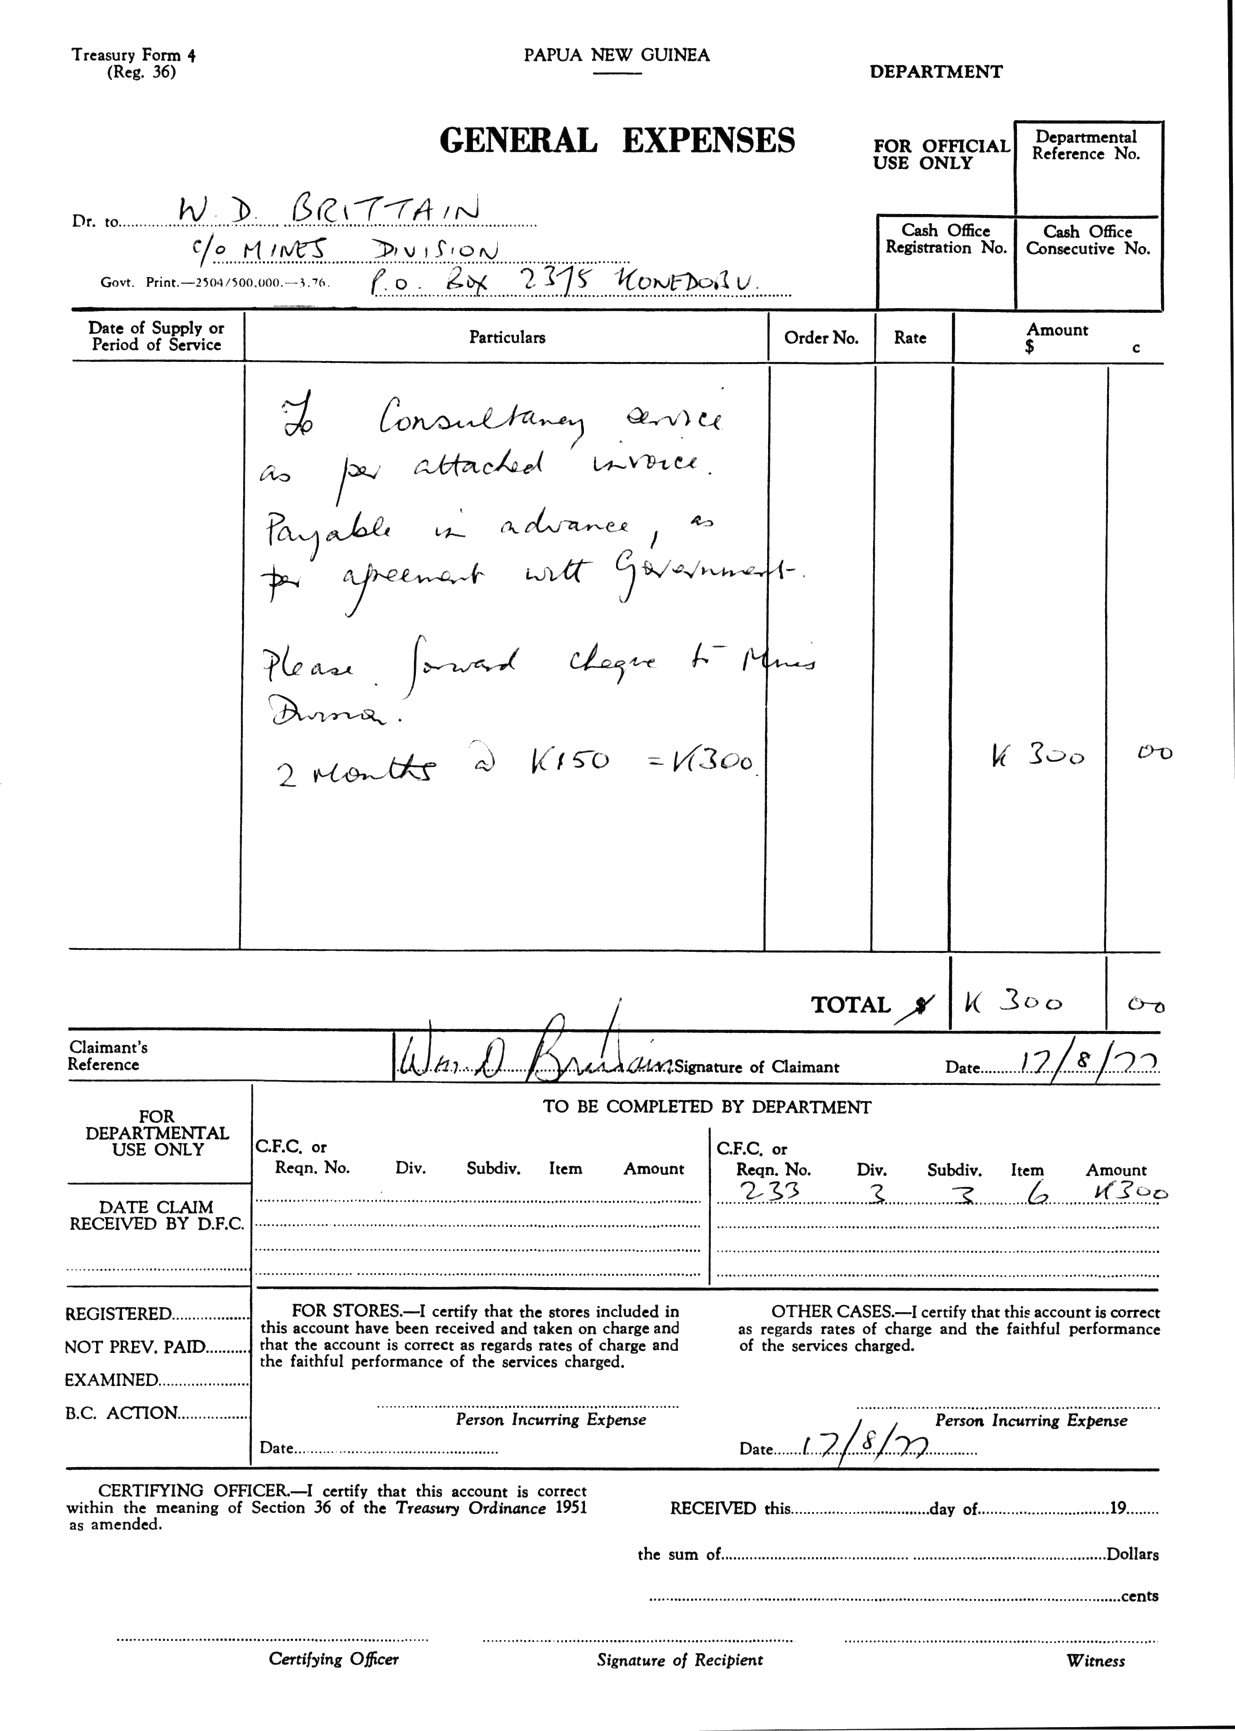 Treasury Form 4
(Reg. 36)
PAPUA NEW GUINEA
DEPARTMENT
GENERAL EXPENSES
FOR OFFICIAL
USE ONLY
Departmental
Reference No.
Dr. to W. D. BRITTAIN
c/o MINES DIVISION
Govt. Print.—2504/500,000.—3.76. P.O. Box 2375 KONEDOBU.
Cash Office
Registration No.
Cash Office
Consecutive No.
Date of Supply or
Period of Service
Particulars
Order No.
Rate
Amount
$ c
To Consultancy service
as per attached invoice.
Payable in advance, as
per agreement with Government.
Please forward cheque to Mines
Division.
2 Months @ K150 = K300. K 300 00
TOTAL $ K 300 00
Claimant's
Reference
Wm. D Brittain Signature of Claimant Date 17/8/77
FOR
DEPARTMENTAL
USE ONLY
TO BE COMPLETED BY DEPARTMENT
C.F.C. or
Reqn. No. Div. Subdiv. Item Amount
C.F.C. or
Reqn. No. Div. Subdiv. Item Amount
233 3 3 6 K300
DATE CLAIM
RECEIVED BY D.F.C.
REGISTERED
NOT PREV. PAID
EXAMINED
B.C. ACTION
FOR STORES.—I certify that the stores included in
this account have been received and taken on charge and
that the account is correct as regards rates of charge and
the faithful performance of the services charged.
Person Incurring Expense
Date
OTHER CASES.—I certify that this account is correct
as regards rates of charge and the faithful performance
of the services charged.
Person Incurring Expense
Date 17/8/77
CERTIFYING OFFICER.—I certify that this account is correct
within the meaning of Section 36 of the Treasury Ordinance 1951
as amended.
RECEIVED this day of 19
the sum of Dollars
cents
Certifying Officer
Signature of Recipient
Witness